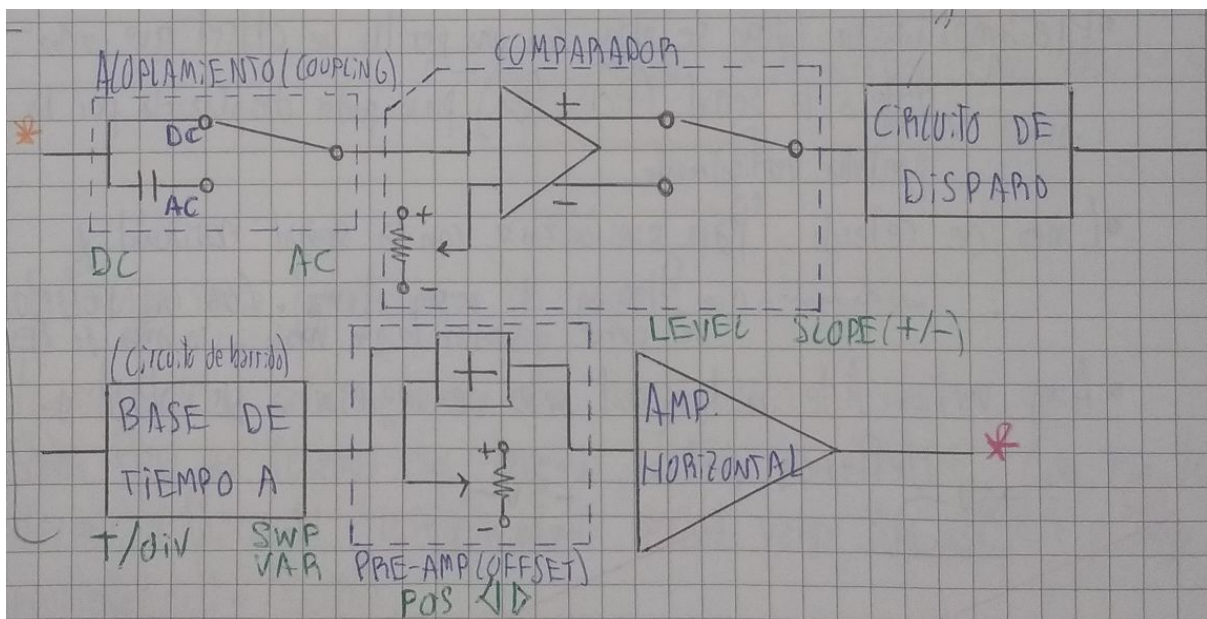 ACOPLAMiENTO (COUPLiNG)
COMPARADOR
DC
AC
DC AC
+
-
+
-
CiRCUiTO DE
DiSPARO
LEVEL SLOPE (+/-)
(Circuito de barrido)
BASE DE
TiEMPO A
T/div SWP
VAR
+
+
-
PRE-AMP (OFFSET)
POS ◁ ▷
AMP.
HORiZONTAL